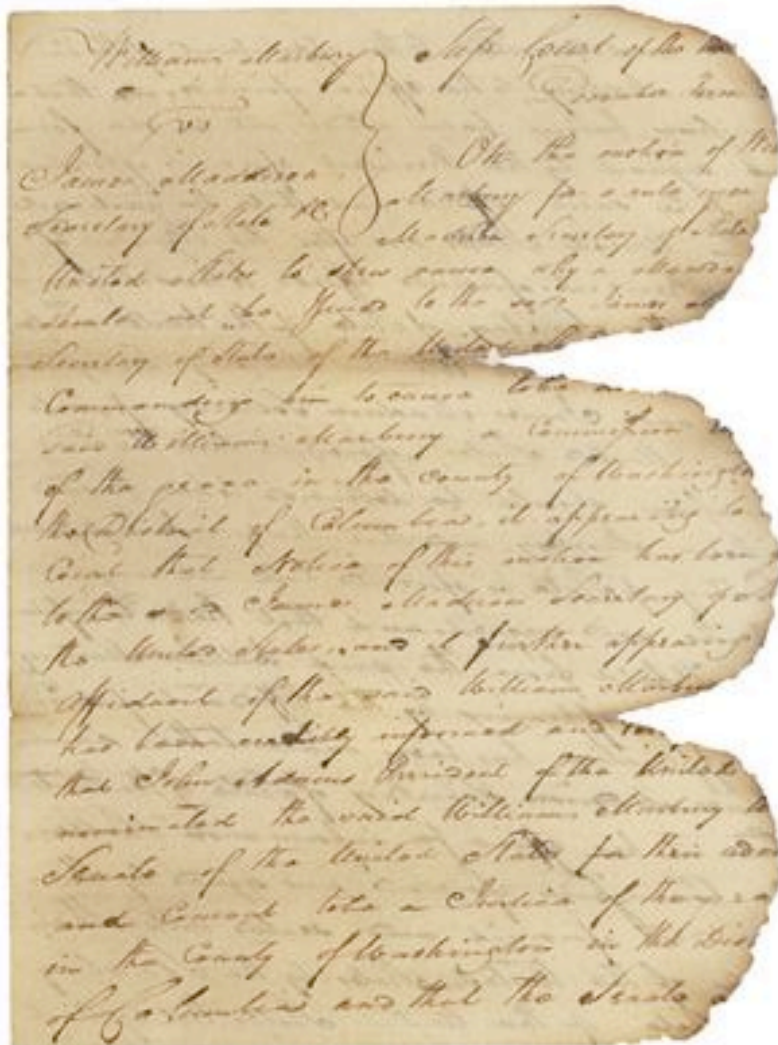 William Marbury Court of the
December Term
vs
On the motion of
James Maddison
Marbury for a rule
Secretary of State &c.
Secretary of State
United States to shew cause why a
should not be Issued to the said James
Secretary of State of the United
Commanding him to cause to be
said William Marbury a Commission
of the peace in the county of Washington
the District of Columbia, it appearing to
Court that Notice of this motion has been
to the said James Madison Secretary of
the United States, and it further appearing
affidavit of the said William
has been informed and
that John Adams President of the United
nominated the said William Marbury
Senate of the United States for their
and Consent to be a Justice of the
in the County of Washington in the Dis
of Columbia and that the Senate